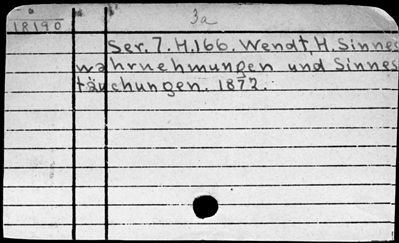 3a
18190
Ser. 7. H. 166. Wendt, H. Sinnes
wahrnehmungen und Sinnes
täuschungen. 1872.